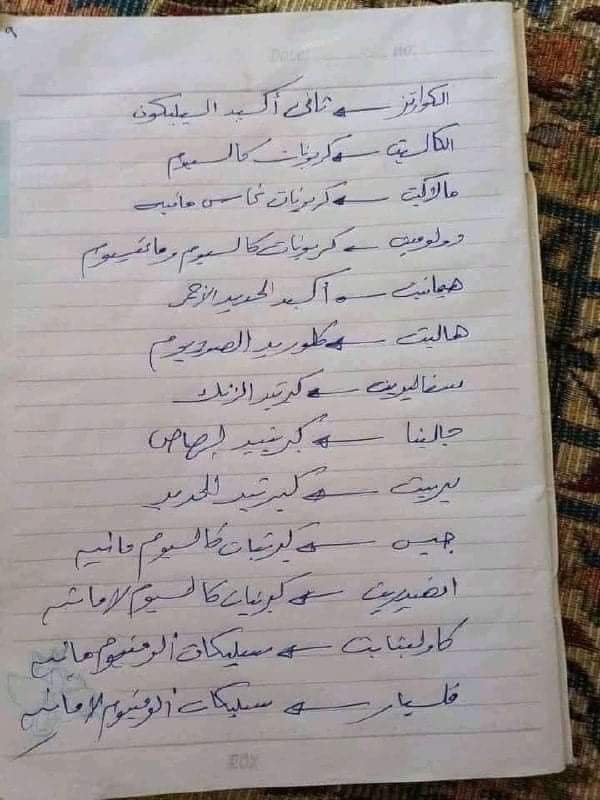 Date: no.
الكوارتز ← ثاني أكسيد السيليكون
الكالسيت ← كربونات كالسيوم
مالاكيت ← كربونات نحاس مائيه
دولوميت ← كربونات كالسيوم وماغنسيوم
هيماتيت ← أكسيد الحديد الأحمر
هاليت ← كلوريد الصوديوم
سفاليريت ← كبرتيد الزنك
جالينا ← كبرتيد الرصاص
بيريت ← كبرتيد الحديد
جبس ← كبرتيات كالسيوم مائيه
انهيدريت ← كبرتيات كالسيوم لا مائيه
كاولينايت ← سيليكات ألومنيوم مائيه
فلسبار ← سيليكات ألومنيوم لا مائيه